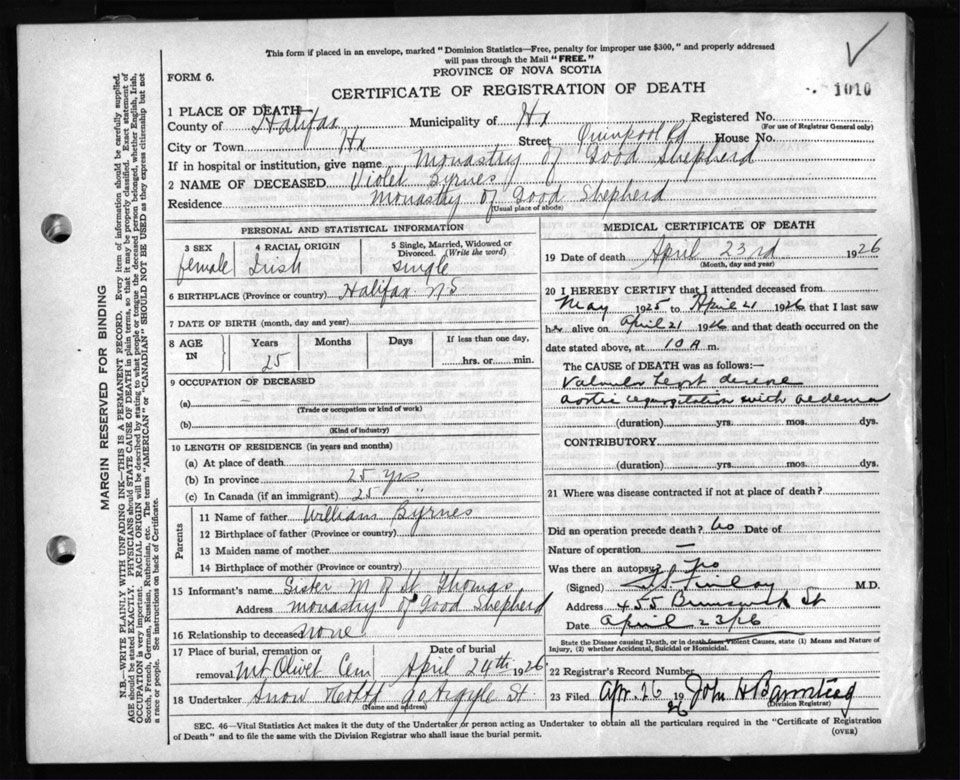 This form if placed in an envelope, marked "Dominion Statistics—Free, penalty for improper use $300," and properly addressed
will pass through the Mail "FREE."
FORM 6.
PROVINCE OF NOVA SCOTIA
CERTIFICATE OF REGISTRATION OF DEATH
1010
1 PLACE OF DEATH—
County of Halifax Municipality of Hx Registered No.
(For use of Registrar General only)
City or Town Hx Street Quinpool Rd House No.
If in hospital or institution, give name Monastry of Good Shepherd
2 NAME OF DECEASED Violet Byrnes
Residence Monastry of Good Shepherd
(Usual place of abode)
PERSONAL AND STATISTICAL INFORMATION
3 SEX female
4 RACIAL ORIGIN Irish
5 Single, Married, Widowed or Divorced. (Write the word) single
6 BIRTHPLACE (Province or country) Halifax N S
7 DATE OF BIRTH (month, day and year)
8 AGE IN Years Months Days If less than one day,
25 hrs. or min.
9 OCCUPATION OF DECEASED
(a)
(Trade or occupation or kind of work)
(b)
(Kind of industry)
10 LENGTH OF RESIDENCE (in years and months)
(a) At place of death
(b) In province 25 yrs
(c) In Canada (if an immigrant) 25 "
Parents
11 Name of father William Byrnes
12 Birthplace of father (Province or country)
13 Maiden name of mother
14 Birthplace of mother (Province or country)
15 Informant's name Sister M of St. Thomas
Address Monastry of Good Shepherd
16 Relationship to deceased none
17 Place of burial, cremation or removal Mt Olivet Cem
Date of burial April 24th 1926
18 Undertaker Snow Argyle St.
(Name and address)
MEDICAL CERTIFICATE OF DEATH
19 Date of death April 23rd 1926
(Month, day and year)
20 I HEREBY CERTIFY that I attended deceased from
May 1925 to April 21 1926 that I last saw
her alive on April 21 1926 and that death occurred on
date stated above, at 10 A m.
The CAUSE OF DEATH was as follows:—
Valvular heart disease
aortic regurgitation with oedema
(duration) yrs. mos. dys.
CONTRIBUTORY
(duration) yrs. mos. dys.
21 Where was disease contracted if not at place of death?
Did an operation precede death? No Date of
Nature of operation —
Was there an autopsy? No
(Signed) Finlay M.D.
Address 455 Brunswick St
Date April 23/26
State the Disease causing Death, or in death from Violent Causes, state (1) Means and Nature of
Injury, (2) whether Accidental, Suicidal or Homicidal.
22 Registrar's Record Number
23 Filed Apr. 26 1926 John H
(Division Registrar)
SEC. 46—Vital Statistics Act makes it the duty of the Undertaker or person acting as Undertaker to obtain all the particulars required in the "Certificate of Registration
of Death" and to file the same with the Division Registrar who shall issue the burial permit.
(OVER)
MARGIN RESERVED FOR BINDING
N.B.—WRITE PLAINLY WITH UNFADING INK—THIS IS A PERMANENT RECORD. Every item of information should be carefully supplied.
AGE should be stated EXACTLY. PHYSICIANS should STATE CAUSE OF DEATH in plain terms, so that it may be properly classified. Exact statement of
OCCUPATION is very important. RACIAL ORIGIN will be described by stating to what people or tongue the deceased person belonged, whether English, Irish,
Scotch, French, German, Russian, Ruthenian, etc. The terms "AMERICAN" or "CANADIAN" SHOULD NOT BE USED as they express citizenship but not
a race or people. See instructions on back of Certificate.